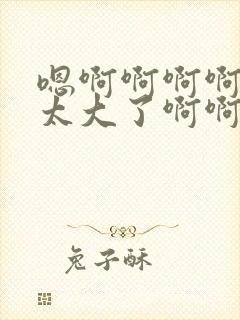 嗯啊啊啊啊
太大了啊啊
兔子酥